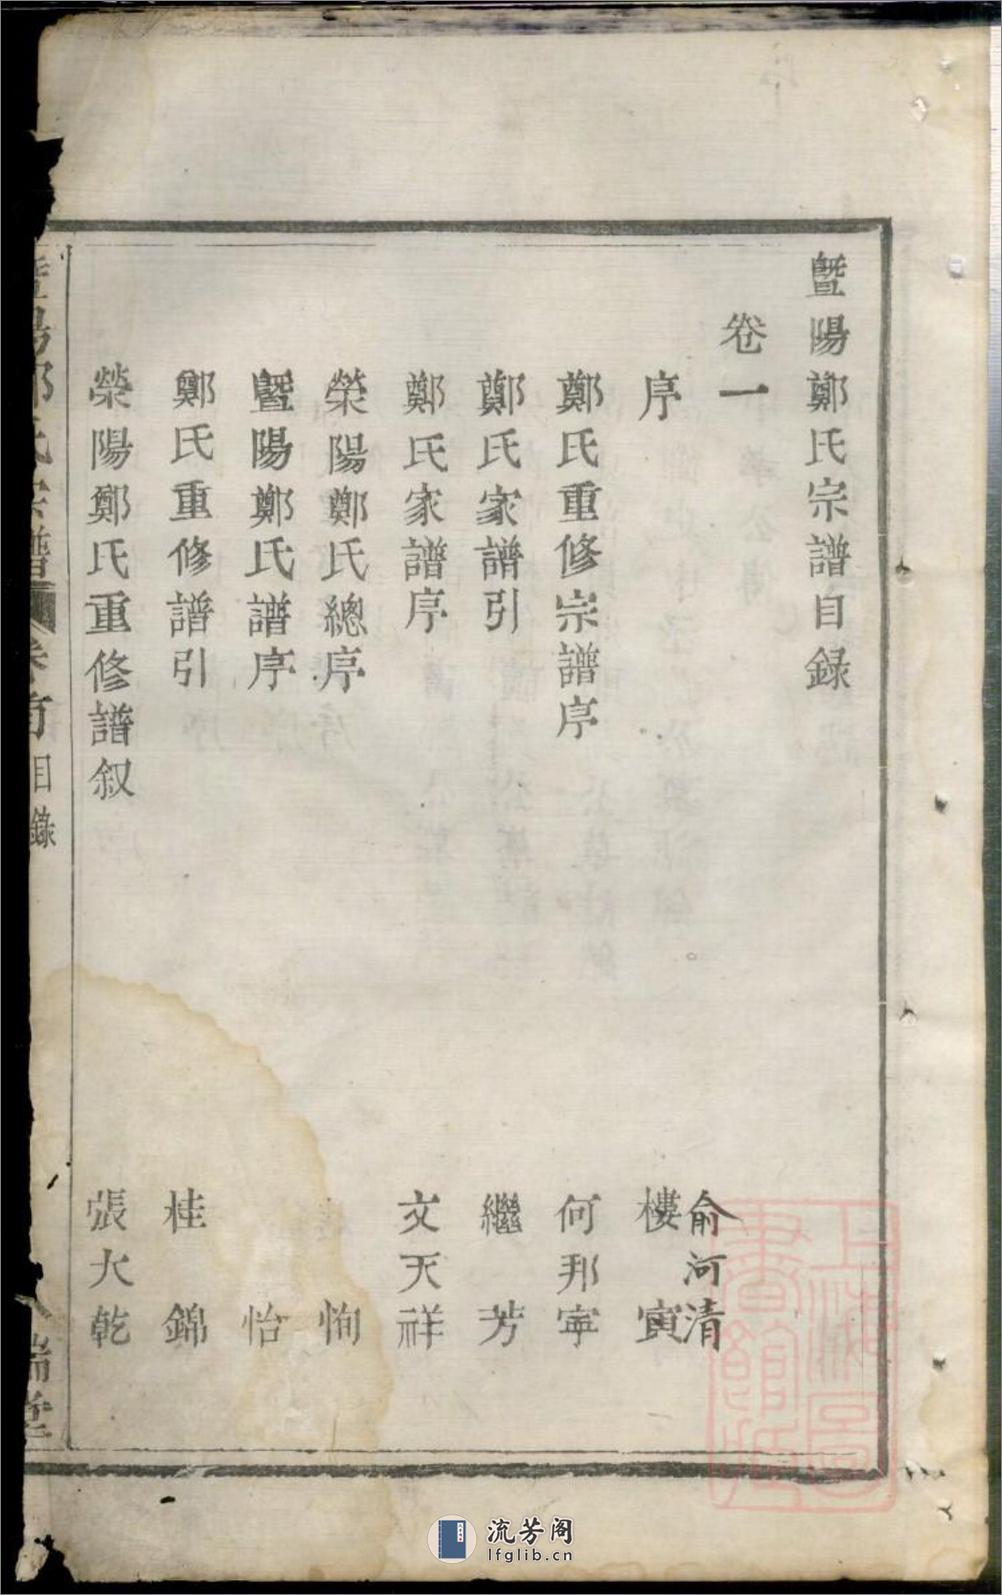 暨陽鄭氏宗譜目録
卷一
序
俞河清
樓寅
鄭氏重修宗譜序 何邦寧
鄭氏家譜引 繼芳
鄭氏家譜序 文天祥
榮陽鄭氏總序 恂
暨陽鄭氏譜序 怡
鄭氏重修譜引 桂錦
榮陽鄭氏重修譜叙 張大乾
暨陽鄭氏宗譜 卷首 目錄
瑞堂
上海圖書館藏
流芳阁
lfglib.cn